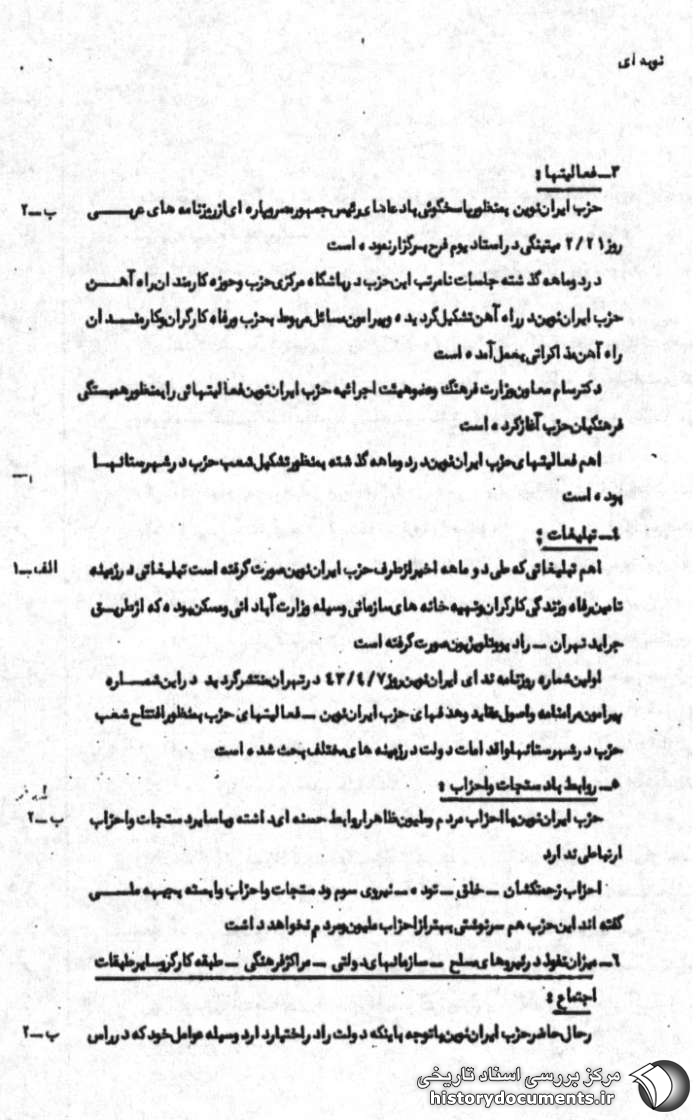 نوبه ای
۳ــ فعالیتها :
حزب ایران نوین بمنظور پاسخگوئی بادعاهای رئیس جمهور مصر و پاره ای از روزنامه های عربـــی
ب ــ ۲
روز ۲/۲۱ میتینگی در استادیوم فرح برگزار نموده است
در دوماهه گذشته جلسات نامرتب این حزب در باشگاه مرکزی حزب وحوزه کارمندان راه آهـــن
حزب ایران نوین در راه آهن تشکیل گردیده و پیرامون مسائل مربوط بحزب ورفاه کارگران وکارمنــد ان
راه آهن مذاکراتی بعمل آمده است
دکتر سام معاون وزارت فرهنگ وعضو هیئت اجرائیه حزب ایران نوین فعالیتهائی را بمنظور همبستگی
فرهنگیان حزب آغاز کرده است
اهم فعالیتهای حزب ایران نوین در دوماهه گذشته بمنظور تشکیل شعب حزب در شهرستانهــا
بوده است
٤ــ تبلیغات :
اهم تبلیغاتی که طی دو ماهه اخیر از طرف حزب ایران نوین صورت گرفته است تبلیغاتی در زمینه
الف ــ ۱
تامین رفاه وزندگی کارگران وتهیه خانه های سازمانی وسیله وزارت آبادانی ومسکن بوده که از طریــق
جراید تهران ــ رادیو وتلویزیون صورت گرفته است
اولین شماره روزنامه ندای ایران نوین روز ٤۳/٤/۷ در تهران منتشر گردید در این شمـــاره
پیرامون مرامنامه واصول عقاید وهدفهای حزب ایران نوین ــ فعالیتهای حزب بمنظور افتتاح شعب
حزب در شهرستانها و اقدامات دولت در زمینه های مختلف بحث شده است
٥ــ روابط با دستجات واحزاب :
حزب ایران نوین با احزاب مردم وملیون ظاهرا روابط حسنه ای داشته وبا سایر دستجات واحزاب
ب ــ ۲
ارتباطی ندارد
احزاب زحمتکشان ــ خلق ــ توده ــ نیروی سوم ودستجات واحزاب وابسته بجبهه ملـــی
گفته اند این حزب هم سرنوشتی بهتر از احزاب ملیون ومردم نخواهد داشت
٦ــ میزان نفوذ در نیروهای مسلح ــ سازمانهای دولتی ــ مراکز فرهنگی ــ طبقه کارگر وسایر طبقات
اجتماع :
رجال حاضر حزب ایران نوین با توجه باینکه دولت را در اختیار دارد وسیله عوامل خود که در راس
ب ــ ۲
مرکز بررسی اسناد تاریخی
historydocuments.ir